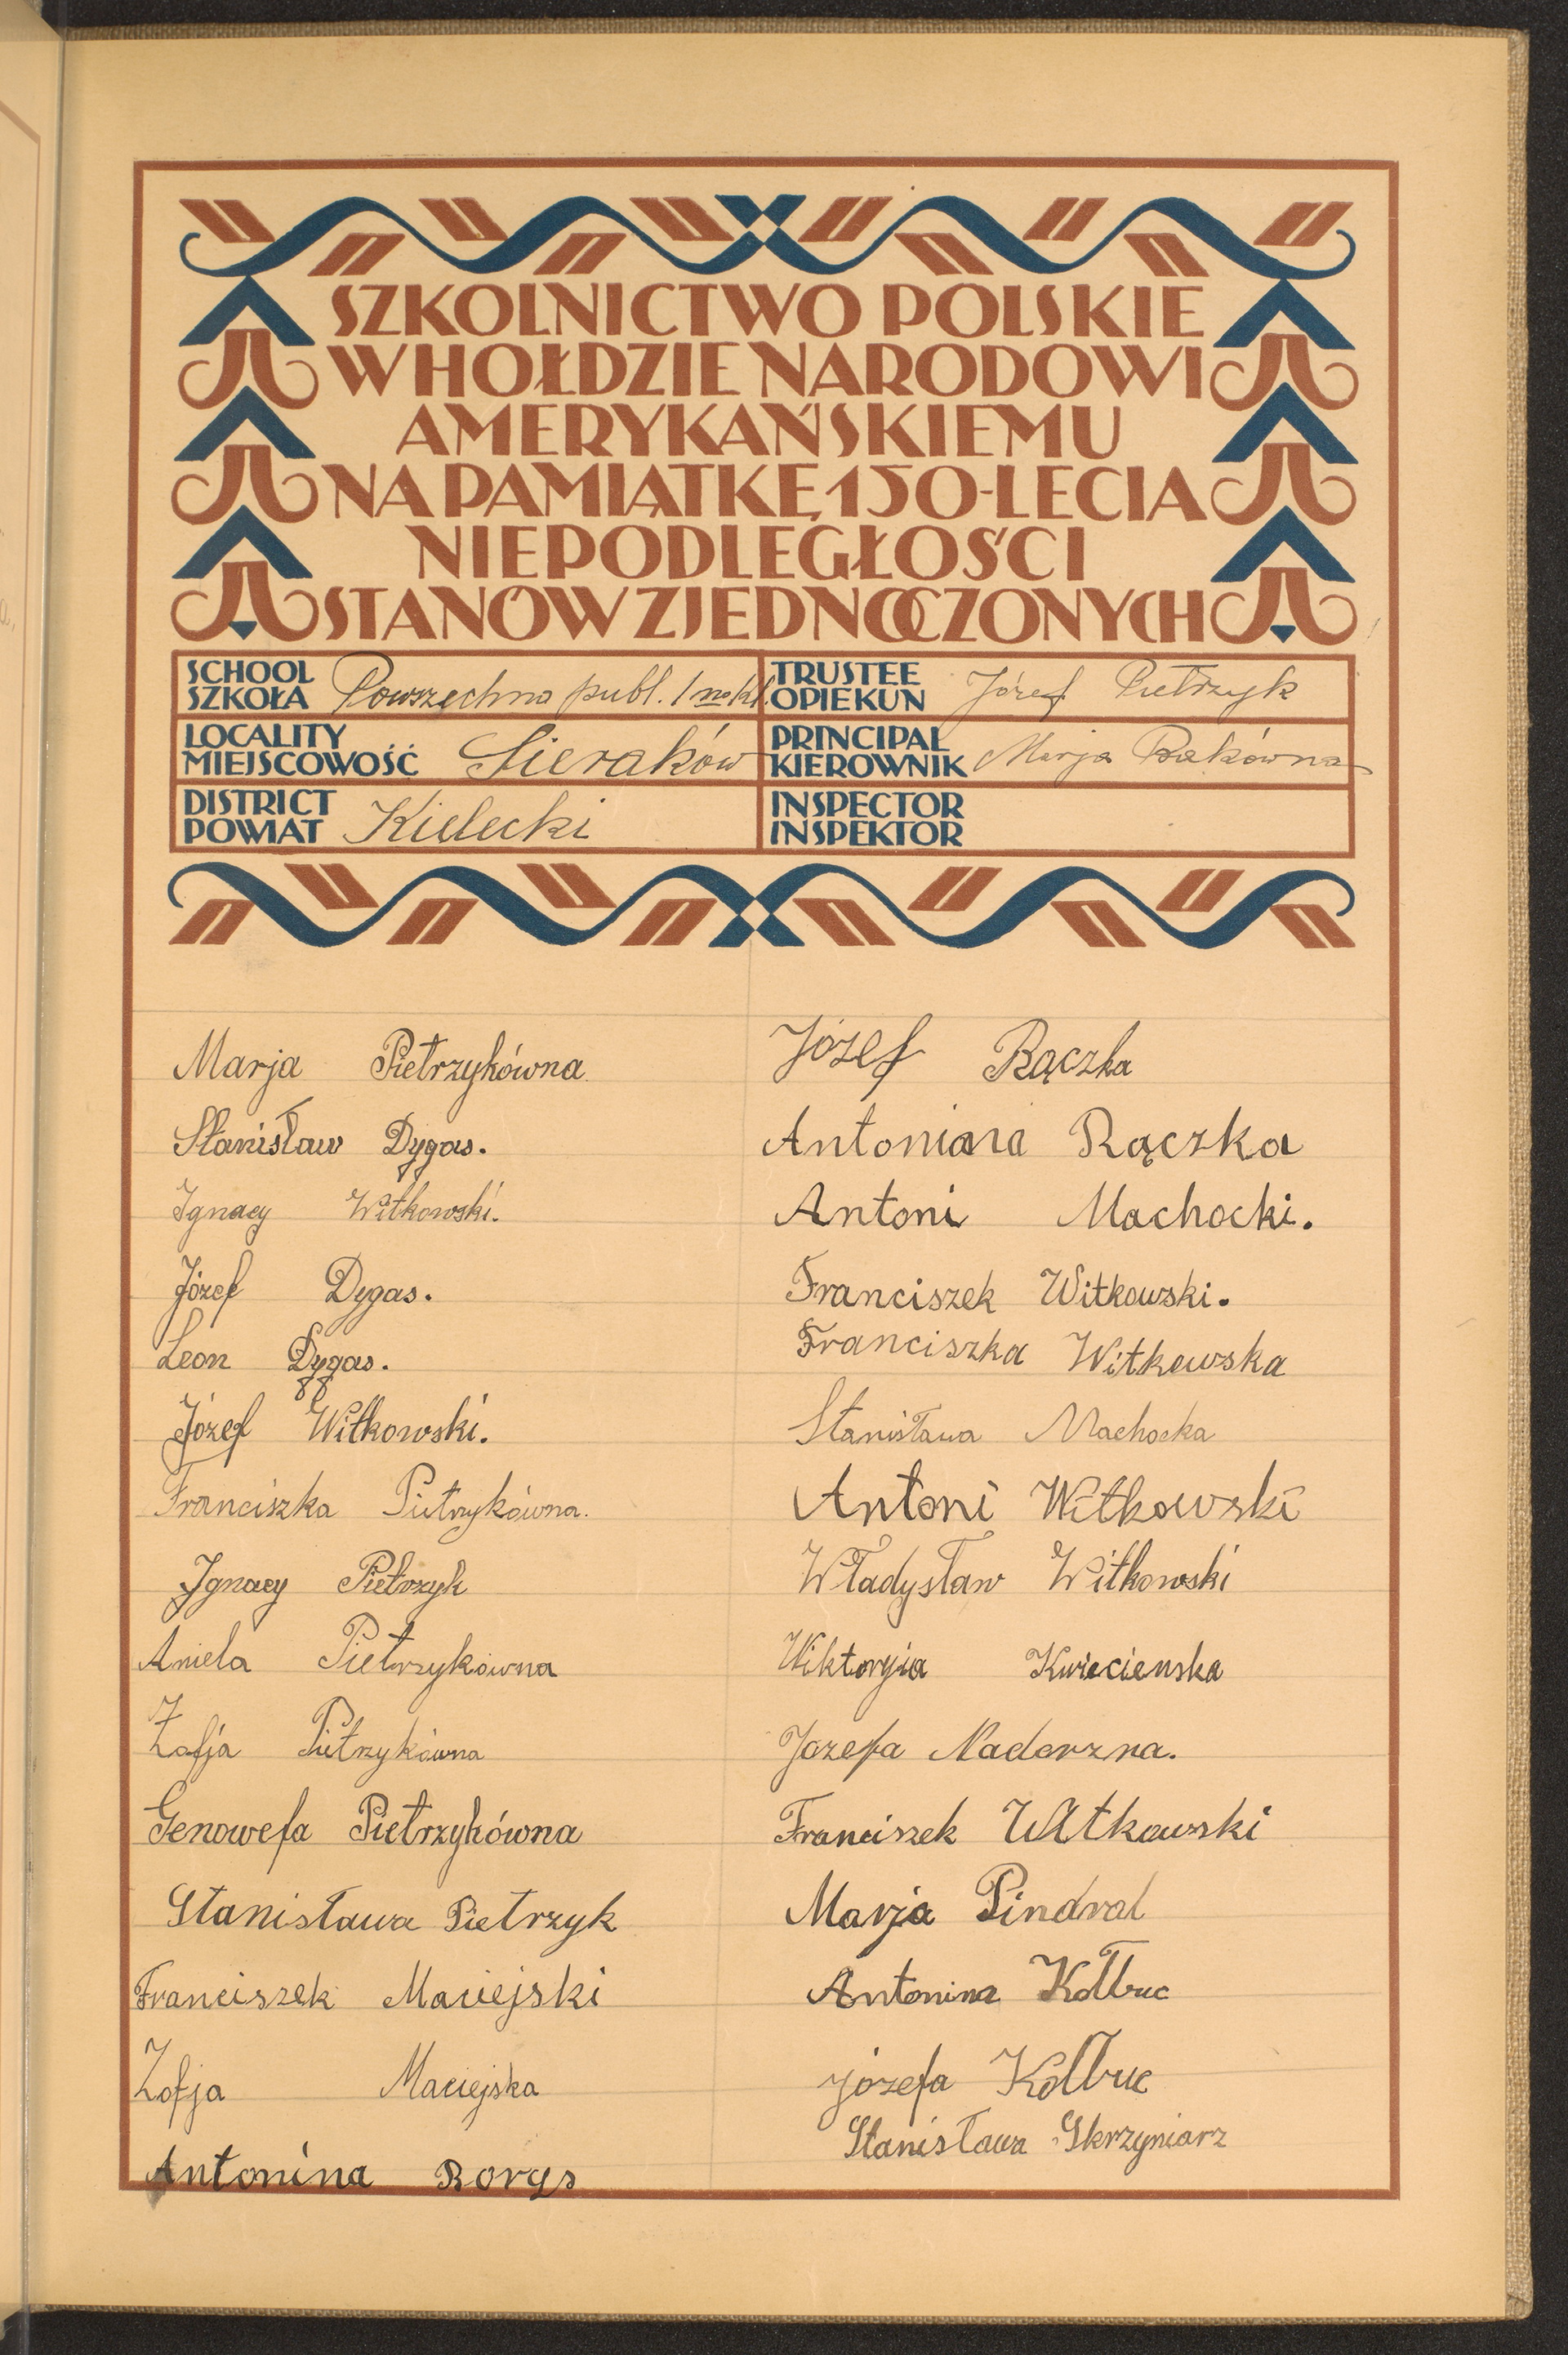 SZKOLNICTWO POLSKIE
W HOŁDZIE NARODOWI
AMERYKAŃSKIEMU
NA PAMIĄTKĘ 150-LECIA
NIEPODLEGŁOŚCI
STANÓW ZJEDNOCZONYCH
SCHOOL
SZKOŁA Powszechna publ. 1 no kl.
LOCALITY
MIEJSCOWOŚĆ Sieraków
DISTRICT
POWIAT Kielecki
TRUSTEE
OPIEKUN Józef Pietrzyk
PRINCIPAL
KIEROWNIK Marja
INSPECTOR
INSPEKTOR
Marja Pietrzykówna
Stanisław Dygas.
Ignacy Witkowski.
Józef Dygas.
Leon Dygas.
Józef Witkowski.
Franciszka Pietrzykówna.
Ignacy Pietrzyk
Aniela Pietrzykówna
Zofja Pietrzykówna
Genowefa Pietrzykówna
Stanisława Pietrzyk
Franciszek Maciejski
Zofja Maciejska
Antonina Borys
Józef Rączka
Antonina Rączka
Antoni Machocki.
Franciszek Witkowski.
Franciszka Witkowska
Stanisława Machocka
Antoni Witkowski
Władysław Witkowski
Wiktorjia Kwiecienska
Jozefa Nadorzna.
Franciszek Witkowski
Marja Pindral
Antonina Kołbuc
Józefa Kołbuc
Stanisława Skrzyniarz